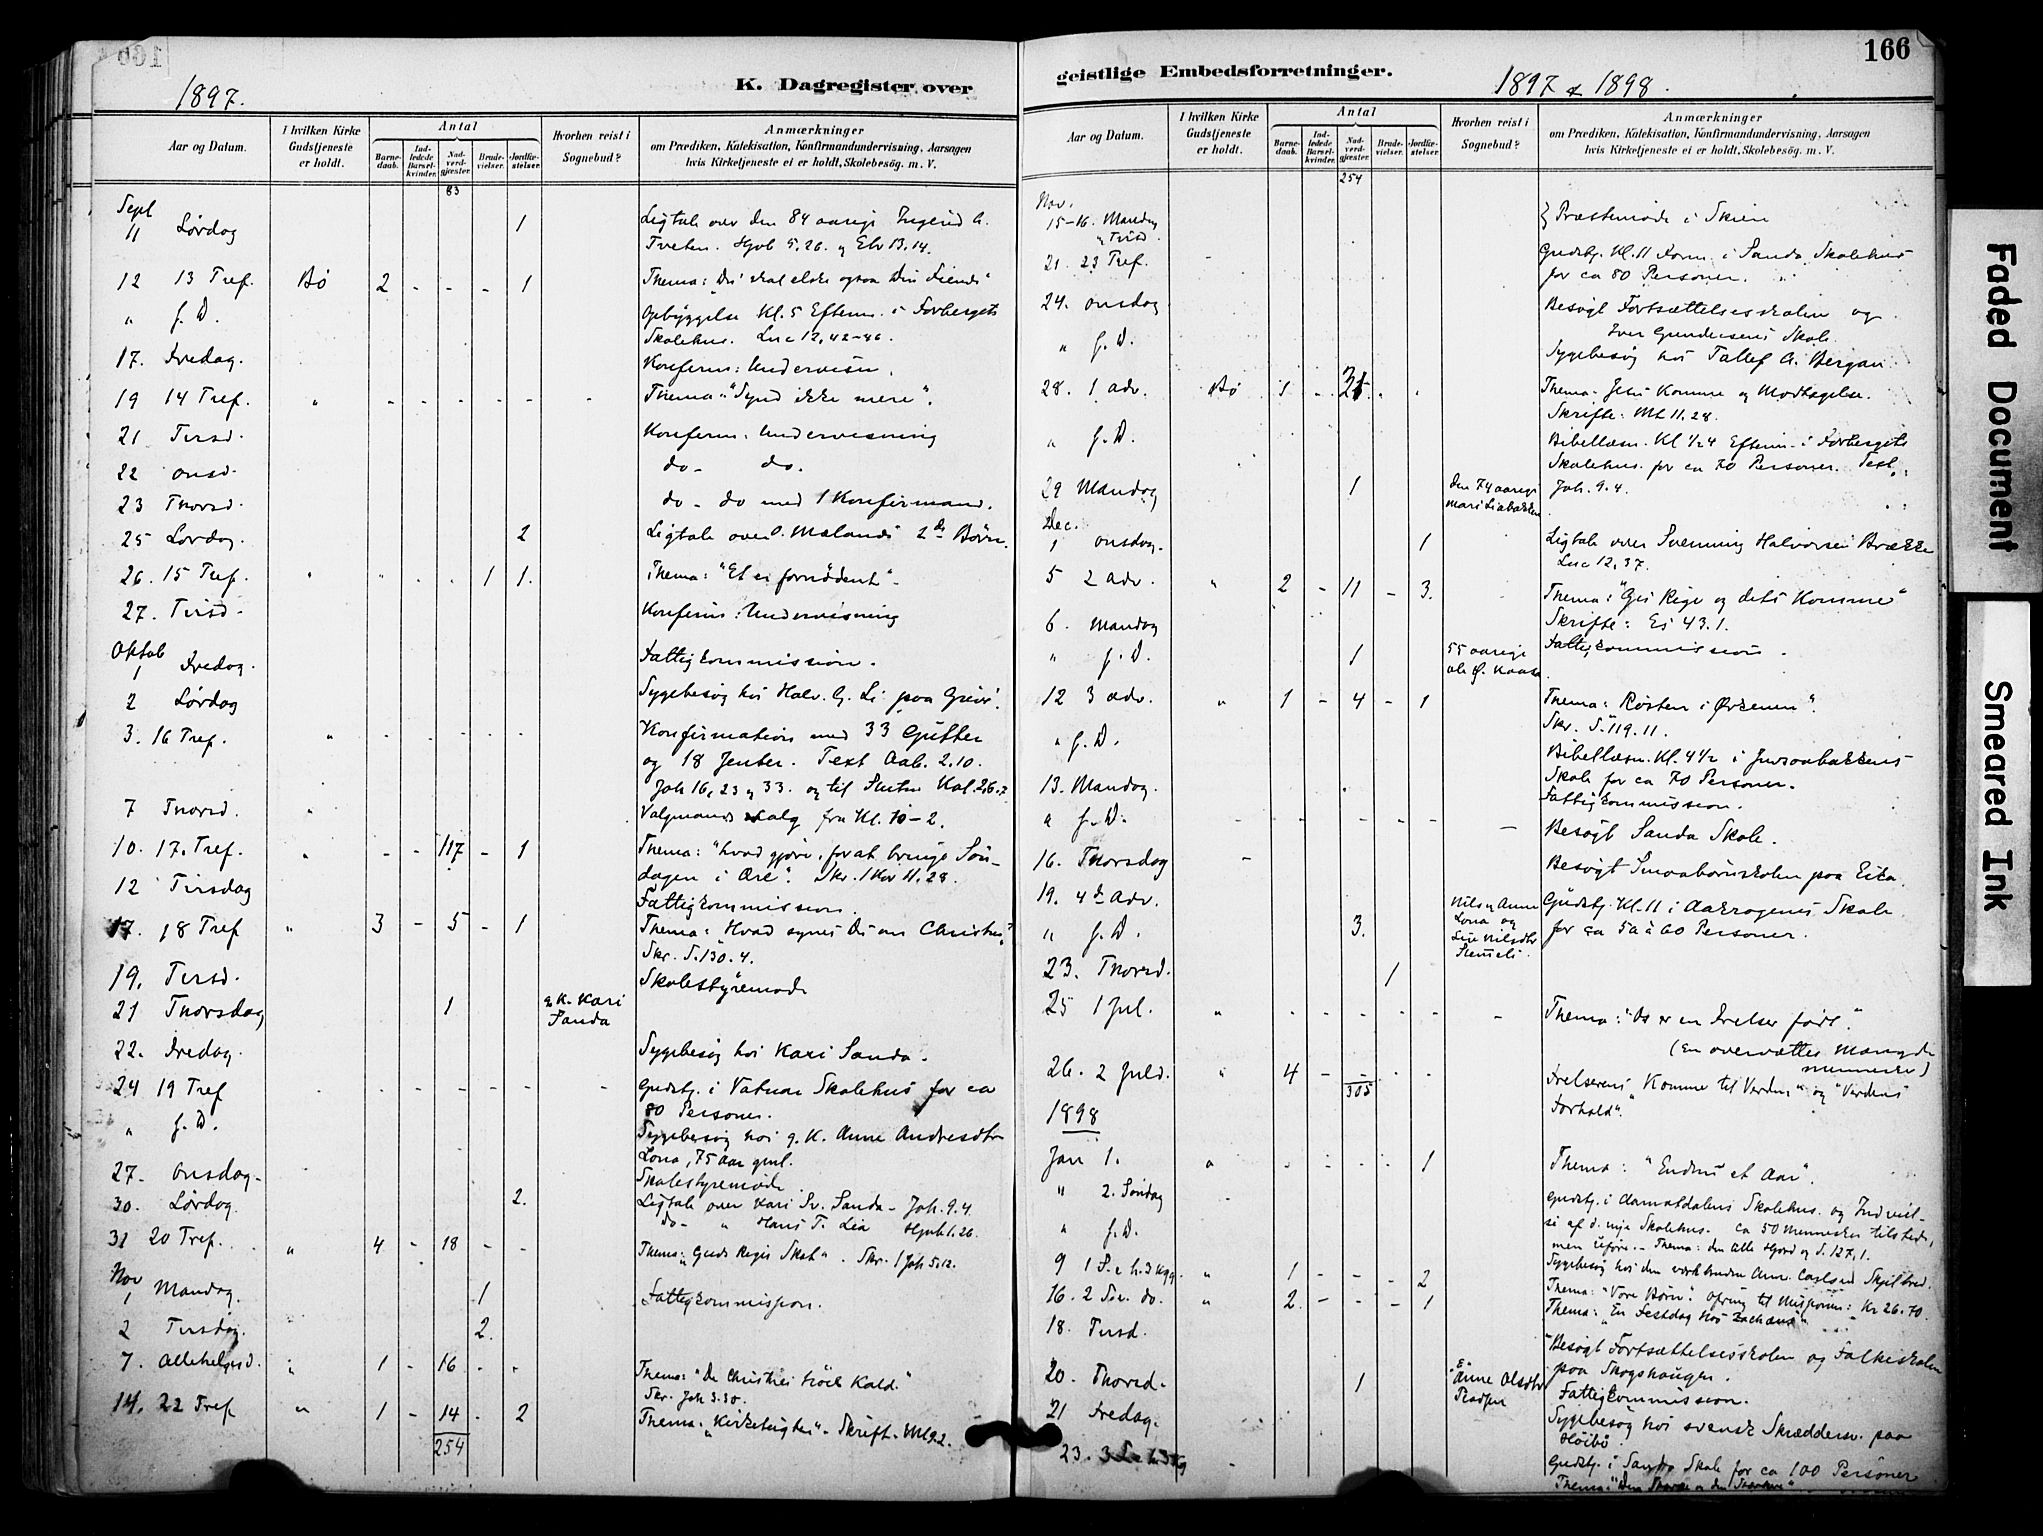 166
K. Dagregister over
geistlige Embedsforretninger.
1897.
Aar og Datum.
I hvilken Kirke Gudstjeneste er holdt.
Antal
Barne-daab.
Ind-ledede Barsel-kvinder.
Nad-verd-gjæster.
Brude-vielser.
Jordfæ-stelser.
Hvorhen reist i Sognebud?
Anmærkninger
om Prædiken, Katekisation, Konfirmandundervisning, Aarsagen
hvis Kirketjeneste ei er holdt, Skolebesög. m. V.
83
Sept
11 Lørdag 1 Ligtale over den 84 aarige Ingerid A.
Tveten. Hjob 5.26. og Ebr 13.14.
12 13 Tref. Bø 2 - - - 1 Thema: "Du skal elske ogsaa Din Fiende"
" f. D. Opbyggelse Kl. 5 Efterm. i Forbergets
Skolehus. Luc 12,42-46.
17. Fredag. Konferm: Undervisn.
19 14 Tref. " - - - - - - Thema: "Synd ikke mere".
21 Tirsd. Konferm: Undervisning
22 onsd. do - do.
23 Thorsd. do - do med 1 Konfirmand.
25 Lørdag. 2 Ligtale over O. Mælands 2de Børn.
26. 15 Tref. " 1 1. Thema: "Et er fornødent".
27. Tirsd. Konferm: Undervisning
Oktob
1 Fredag. Fattigkommission.
2 Lørdag Sygebesøg hos Halv. G. Li paa Grivi.
3. 16 Tref. " - - - - - Konfirmation med 33 Gutter
og 18 Jenter. Text Aab. 2.10.
Joh 16, 23 og 33. og til Slutn Kol. 2,6.7
7 Thorsd. " Valgmandsvalg fra Kl. 10-2.
10. 17. Tref. " - - 117 - 1 Thema: "hvad gjøre, for at bringe Søn-
dagen i Ære". Skr. 1 Kor 11.28.
12 Tirsdag Fattigkommission.
17. 18 Tref " 3 - 5 - 1 Thema: "Hvad synes Di om Christus"
Skr. S. 130.4.
19. Tirsd. Skolestyremøde
21 Thorsdag 1 g. K. Kari
Sanda
22. Fredag. Sygebesøg hos Kari Sanda.
24 19 Tref - - - - - - Gudstj. i Vatnar Skolehus for ca
80 Personer.
" f. D. Sygebesøg hos g. K. Anne Andresdtr
Lona, 75 Aar gml.
27. onsdag. Skolestyremøde
30. Lørdag. 2. Ligtale over Kari Sv. Sanda - Joh. 9.4.
do - " Hans T. Lia Hjob 1.26.
31 20 Tref. " 4 - 18 - - Thema: "Guds Riges Skat". Skr. 1 Joh 5.12.
Nov
1 Mandag. 1 Fattigkommission.
2 Tirsdag. 2.
7. Allehelgensd. " 1 - 16 - - Thema: "De Christnes høie Kald."
Skr. Joh 3.30.
14. 22 Tref " 1 - 14 - 2 Thema: "Kirketugten". Skrift. Mt 9.2.
254
1897 & 1898.
Aar og Datum.
I hvilken Kirke Gudstjeneste er holdt.
Antal
Barne-daab.
Ind-ledede Barsel-kvinder.
Nad-verd-gjæster.
Brude-vielser.
Jordfæ-stelser.
Hvorhen reist i Sognebud?
Anmærkninger
om Prædiken, Katekisation, Konfirmandundervisning, Aarsagen
hvis Kirketjeneste ei er holdt, Skolebesög. m. V.
254
Nov.
15-16. Mandag
" Tirsd. } Præstemøde i Skien
21. 23 Tref. - Gudstj. Kl. 11 Form. i Sanda Skolehus
for ca 80 Personer.
24. onsdag Besøgt Fortsættelsesskolen og
Iver Gundersens Skole.
" f. D. Sygebesøg hos Tallef A. Bergan
28. 1 adv. Bø 1 - 31 - - Thema: Jesu Komme og Modtagelse.
Skrifte: Mt 11.28.
" f. D. Bibellæsn. Kl 1/2 4 Efterm. i Forbergets
Skolehus for ca 70 Personer. Text:
Joh. 9.4.
29 Mandag 1 den 74 aarige
Mari Liabakken
Dec.
1 onsdag. 1 Ligtale over Svenning Halvorsen Brække
Luc 12,37.
5 2 adv. " 2 - 11 - 3. Thema: "Gds Rige og dets Komme"
Skrifte: Es 43.1.
6. Mandag Fattigkommission.
" f. D. 1 55 aarige
Ole Ø. Kaasa
12 3 adv. " 1 - 4 - 1 Thema: "Røsten i Ørkenen".
Skr. S. 119.11.
" f. D. Bibellæsn. Kl. 4 1/2 i
Skole for ca 70 Personer.
13. Mandag. Fattigkommission.
" f. D. Besøgt Sanda Skole.
16. Thorsdag Besøgt Smaabørnskolen paa Eika.
19. 4de Adv. Gudstj. Kl. 11 i Aakrogenes Skole
for ca 50 à 60 Personer.
" f. D. 3. Nils og Anne
Lona og
Nilsdtr
23. Thorsd. 1
25 1 Jul. " - - - - - - Thema: "Os er en Frelser født".
(En overvættes Mængde
mennesker)
26. 2 Juld. " 4 - - - - "Frelserens Komme til Verden" og "Verdens
Forhold".
305
1898
Jan 1. " - - - - 1 Thema: "Endnu et Aar".
" 2. Søndag Gudstj. i Aamotdalens Skolehus og Indviel-
se af d. nye Skolehus. Ca 50 Mennesker tilstede,
men uføre. - Thema: den lille Hjord og S. 127,1.
" f. D. Sygebesøg hos den værkbrudne Anne Carlsen Skjelbred.
9 1 S. e. h. 3 Kgg. " 1 - - - 2 Thema: "Vore Børn". Ofring til Missionen: Kr 26.70.
16. 2 S. e. do. " 2. - - - 1 Thema: "En Festdag hos Zachæus".
18. Tirsd. Besøgt Fortsættelsesskolen og Folkeskolen
paa Skogshaugen.
20. Thorsd. 1 E
Anne Olsdtr Fattigkommission.
21 Fredag. Sygebesøg hos svensk Skrædders. paa
Høibø.
23. 3 S. e. h. 3 Kg - Gudstj. i Sanda Skole for ca 100 Personer
Faded Document
Smeared Ink